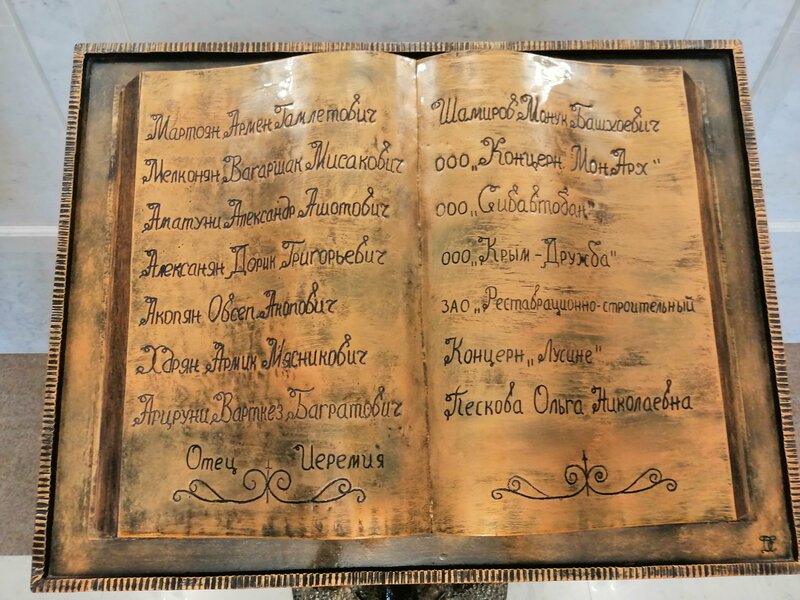 Мартоян Армен Гамлетович
Мелконян Вагаршак Мисакович
Аматуни Александр Ашотович
Алексанян Дорик Григорьевич
Акопян Овсеп Акопович
Хдрян Армик Мясникович
Арцруни Варткез Багратович
Отец Иеремия
Шамиров Монук Башхоевич
ООО „Концерн МонАрх"
ООО „Сибавтобан"
ООО „Крым-Дружба"
ЗАО „Реставрационно-строительный
Концерн „Лусине"
Пескова Ольга Николаевна